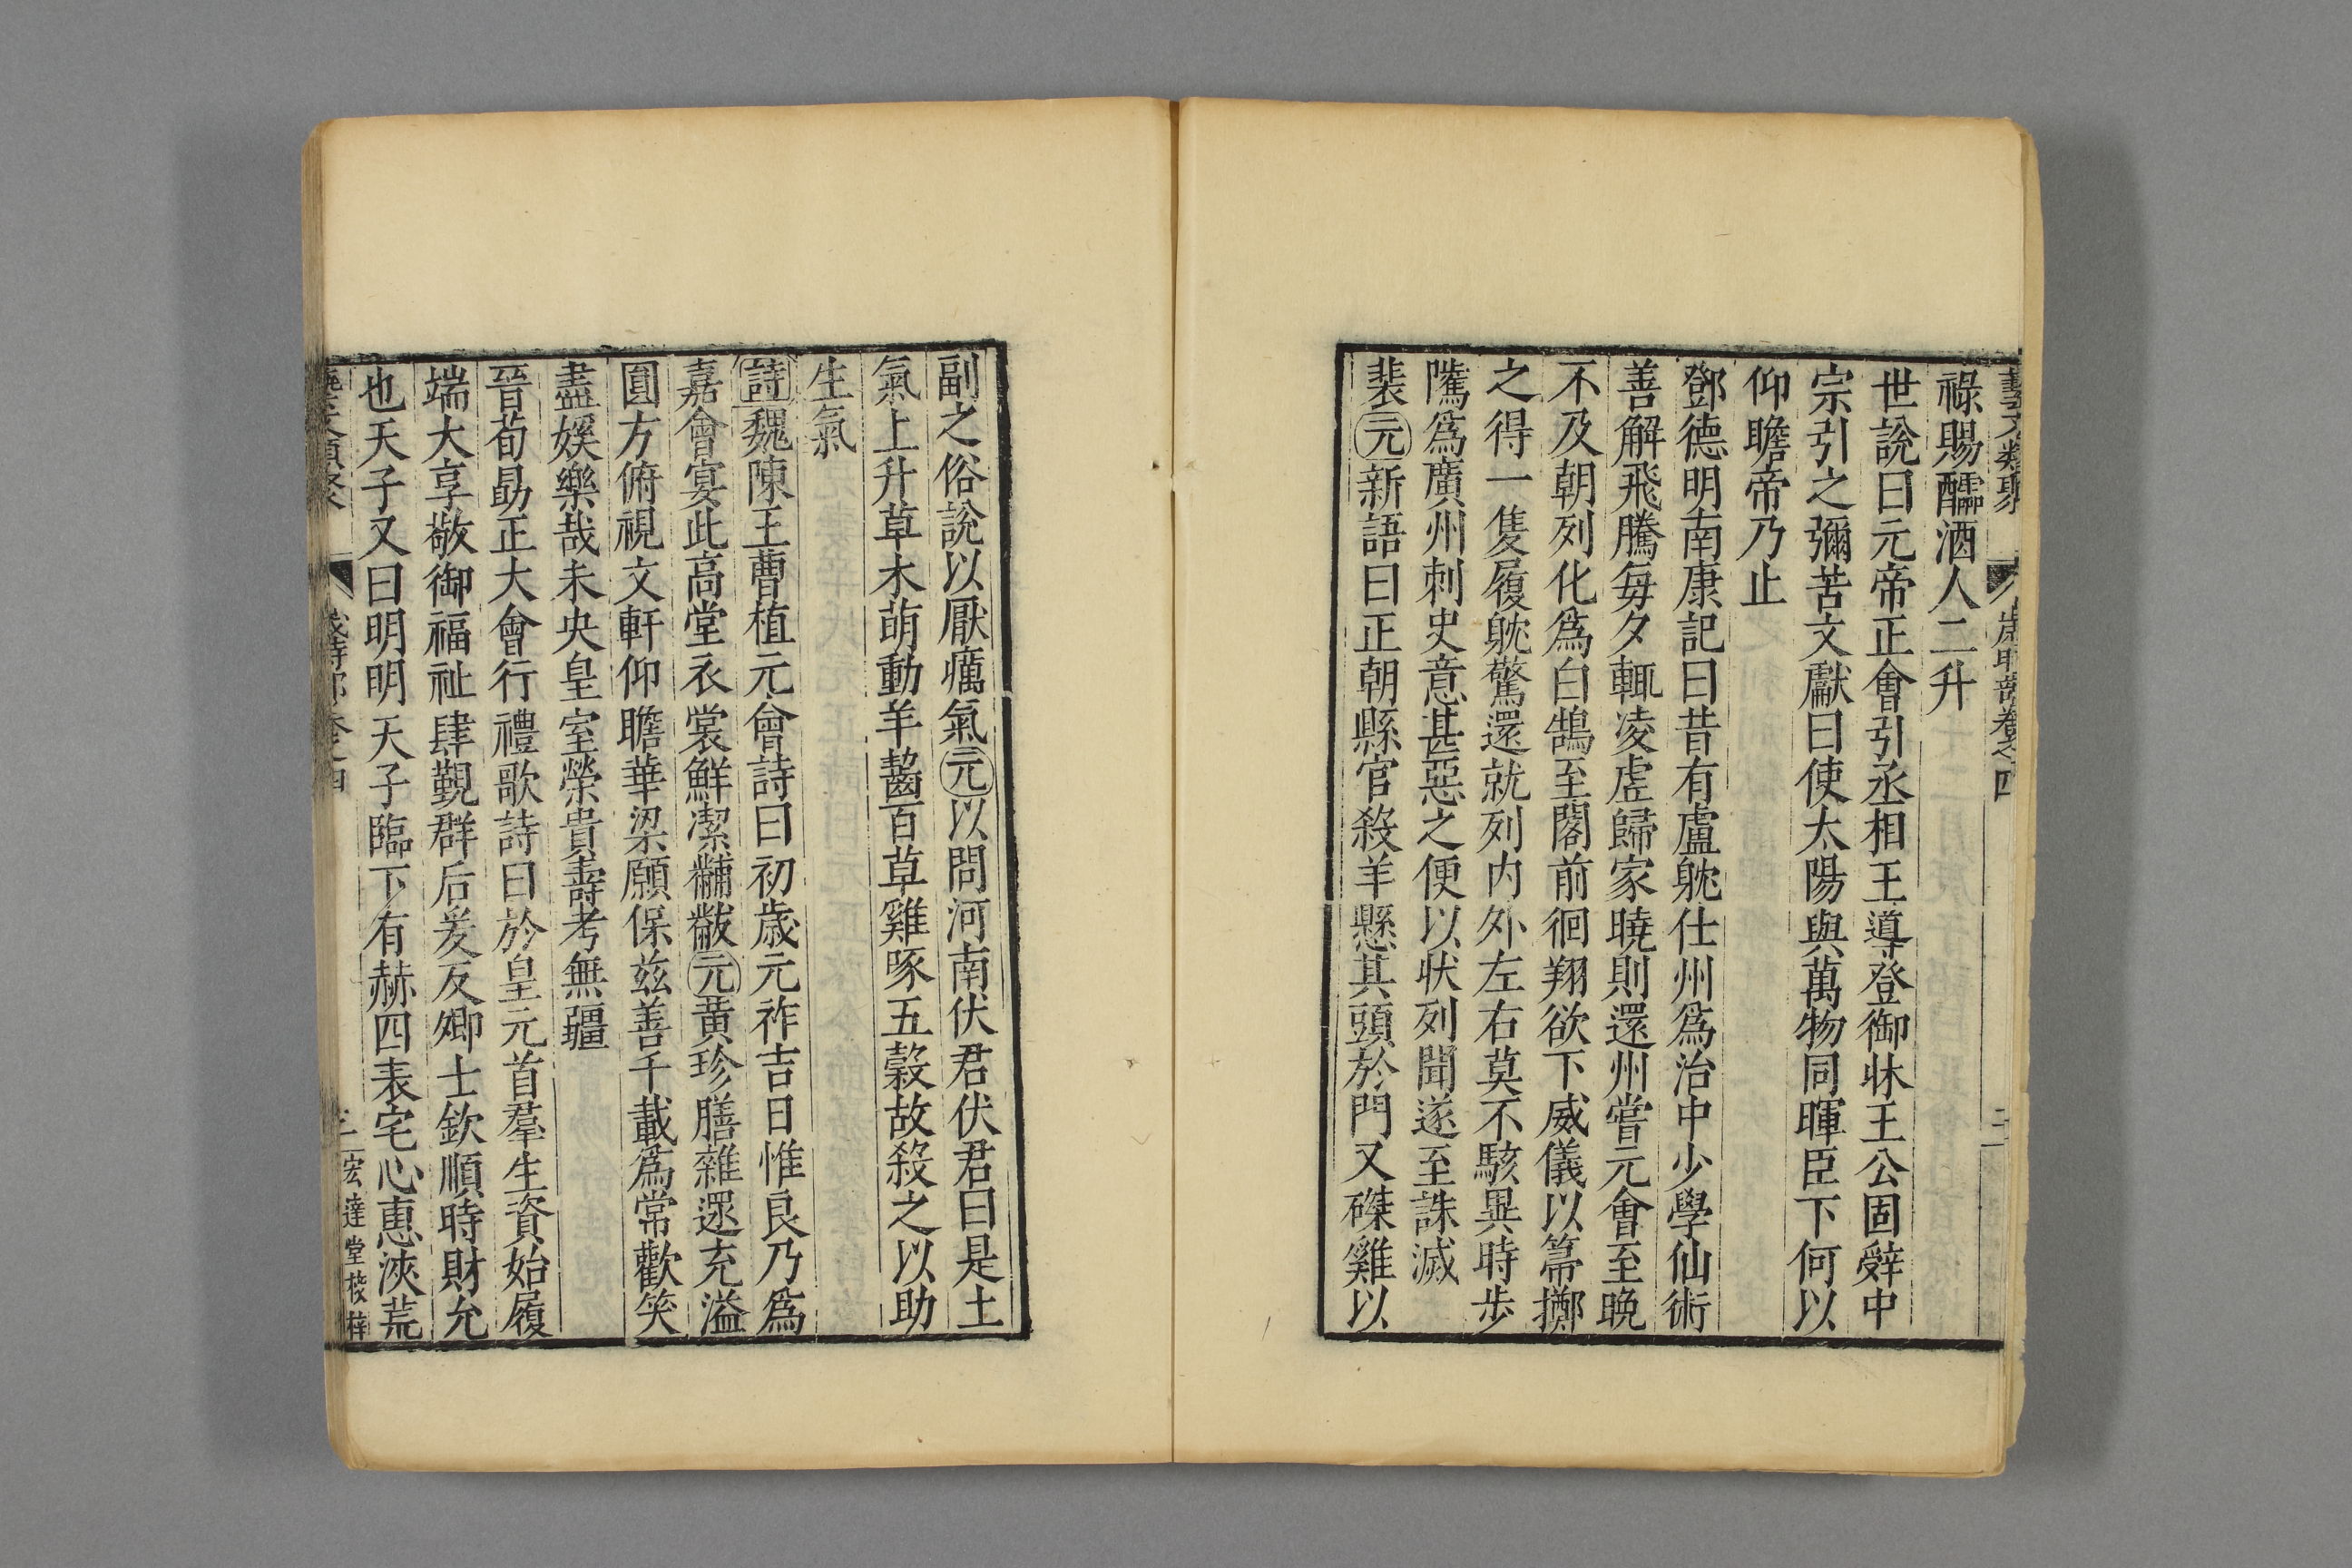 藝文類聚 歲時部卷之四 二
祿賜醽酒人二升
世說曰元帝正會引丞相王導登御牀王公固辭中
宗引之彌苦文獻曰使太陽與萬物同暉臣下何以
仰瞻帝乃止
鄧德明南康記曰昔有盧躭仕州爲治中少學仙術
善解飛騰每夕輒凌虛歸家曉則還州嘗元會至曉
不及朝列化爲白鵠至閣前徊翔欲下威儀以箒擲
之得一隻履躭驚還就列内外左右莫不駭異時步
隲爲廣州刺史意甚惡之便以狀列聞遂至誅滅
裴元新語曰正朝縣官殺羊懸其頭於門又磔雞以
副之俗說以厭癘氣元以問河南伏君伏君曰是土
氣上升草木萌動羊齧百草雞啄五穀故殺之以助
生氣
詩魏陳王曹植元會詩曰初歲元祚吉日惟良乃爲
嘉會宴此高堂衣裳鮮潔黼黻元黃珍膳雜還充溢
圓方俯視文軒仰瞻華梁願保兹善千載爲常歡笑
盡娛樂哉未央皇室榮貴壽考無疆
晉荀勗正大會行禮歌詩曰於皇元首羣生資始履
端大享敬御福祉肆覲群后爰及卿士欽順時財允
也天子又曰明明天子臨下有赫四表宅心惠浹荒
藝文類聚 歲時部卷之四 二 宏達堂校梓